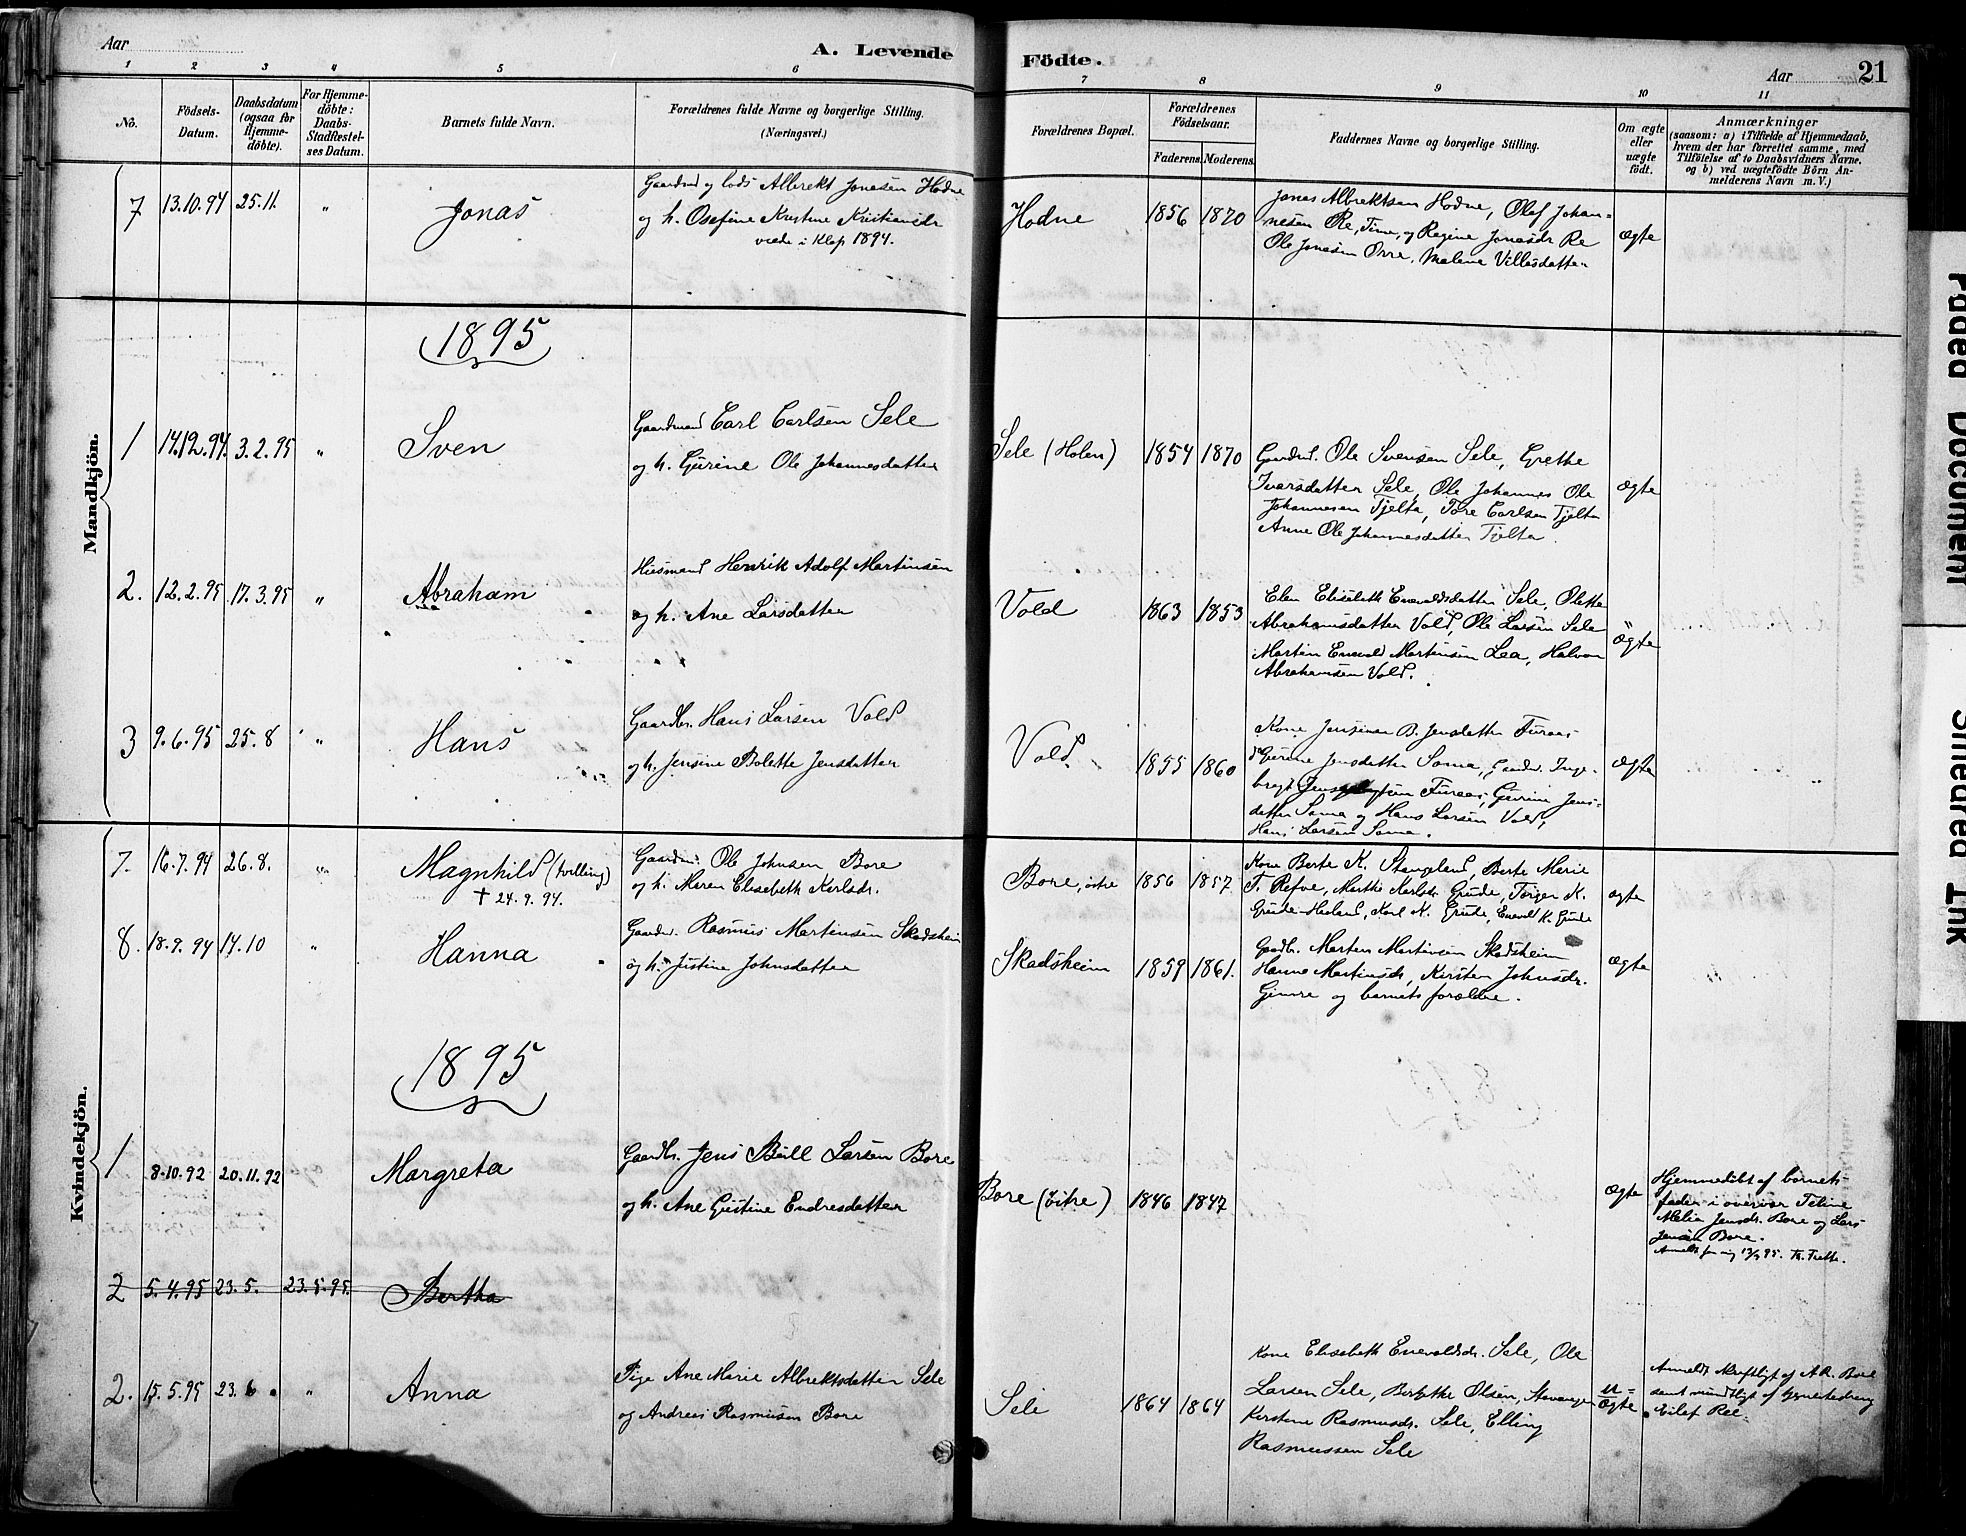 Aar
A. Levende
Födte.
Aar
21
1 2 3 4 5 6 7 8 9 10 11
No.
Födsels-
Datum.
Daabsdatum
(ogsaa for
Hjemme-
döbte).
For Hjemme-
döbte:
Daabs-
Stadfæstel-
ses Datum.
Barnets fulde Navn.
Forældrenes fulde Navne og borgerlige Stilling.
(Næringsvei.)
Forældrenes Bopæl.
Forældrenes
Födselsaar.
Faderens. Moderens.
Faddernes Navne og borgerlige Stilling.
Om ægte
eller
uægte
født.
Anmærkninger
(saasom: a) i Tilfælde af Hjemmedaab,
hvem der har forrettet samme, med
Tilföielse af to Daabsvidners Navne.
og b) ved uægtefödte Börn An-
melderens Navn m. V.)
Mandkjön.
7 13.10.94 25.11. " Jonas
Gaardmd og lods Albrekt Jonasen Hodne
og h. Osefine Kristine Kristiansdr
viede i Klep 1894.
Hodne 1856 1870
Jonas Albrektsen Hodne, Olaf Johan-
nesen Re, Time, og Regine Jonasdr Re
Ole Jonasen Orre, Malene Villesdatter
ægte
1895
1 14.12.94. 3.2.95 " Sven
Gaardmand Carl Carlsen Sele
og h. Gurine Ole Johannesdatter
Sele (Holen) 1854 1870
Gaardmd. Ole Svensen Sele, Grethe
Ivarsdatter Sele, Ole Johannes Ole
Johannesen Tjelta, Tore Carlsen Tjelta
Anne Ole Johannesdatter Tjelta.
ægte
2. 12.2.95 17.3.95 " Abraham
Huesmand Henrik Adolf Martinsen
og h. Ane Larsdatter
Vold 1863 1853
Elen Elisebeth Enevaldsdatter Sele, Olette
Abrahamsdatter Vold, Ole Larsen Sele
Martin Enevald Martinsen Lea, Halvor
Abrahamsen Vold.
ægte
3 9.6.95 25.8 " Hans
Gaardbr. Hans Larsen Vold
og h. Jensine Bolette Jensdatter
Vold. 1855 1860
Kone Jensine B. Jensdatter Furaas
Gurine Jensdatter Soma, Gaardbr. Inge-
bregt Furaas, Gurine Jens-
datter Soma og Hans Larsen Vold,
Hans Larsen Soma.
ægte
Kvindekjön.
7. 16.7.94 26.8. " Magnhild (tvilling)
† 24.9.94.
Gaardmd. Ole Johnsen Bore
og h. Maren Elisebeth Karlsdr.
Bore, östre 1856 1857
Kone Berte K. Stangeland, Berte Marie
T. Refve, Marthe Karlsdr. Grude, Törger K.
Grude Hauland, Karl K. Grude, Enevald K. Grude
ægte
8. 18.9.94 14.10 " Hanna
Gaardbr. Rasmus Martinsen Skadsheim
og h. Justine Johnsdatter
Skadsheim 1859 1861.
Gaardbr. Morten Martinsen Skadsheim
Hanna Martinsdr, Kirsten Johnsdr.
Gimre og barnets forældre.
ægte
1895
1 8.10.92 20.11.92 Margreta
Gaardbr. Jens Bull Larsen Bore
og h. Ane Gustine Endresdatter
Bore (östre) 1846 1847
ægte
Hjemmedöbt af barnets
fader i overvær Feline
Malia Jensdr. Bore og Lars
Jensen Bore.
2 5.4.95 23.5. 23.5.95. Bertha
2. 15.5.95 23.6 " Anna
Pige Ane Marie Albrektsdatter Sele
og Andreas Rasmusen Bore
Sele 1864 1864
Kone Elisebeth Enevaldsdr. Sele, Ole
Larsen Sele, Olsen, Stavanger
Kirstine Rasmusdr. Sele, Elling
Rasmussen Sele
u-
ægte
Anmeldt skriftligt af A.R. Bore
samt mundtligt af
Eilef Ree.